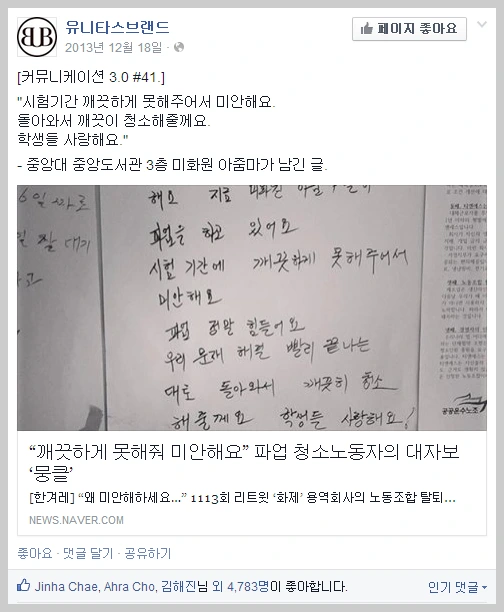 유니타스브랜드
2013년 12월 18일 ·
페이지 좋아요
[커뮤니케이션 3.0 #41.]
"시험기간 깨끗하게 못해주어서 미안해요.
돌아와서 깨끗이 청소해줄께요.
학생들 사랑해요."
- 중앙대 중앙도서관 3층 미화원 아줌마가 남긴 글.
해요 지금
파업을 하고 있어요
시험 기간에 깨끗하게 못해주어서
미안해요
파업 정말 힘들어요
우리 문제 해결 빨리 끝나는
대로 돌아와서 깨끗히 청소
해줄께요 학생들 사랑해요!
공공운수노조
“깨끗하게 못해줘 미안해요” 파업 청소노동자의 대자보
‘뭉클’
[한겨레] “왜 미안해하세요...” 1113회 리트윗 ‘화제’ 용역회사의 노동조합 탈퇴...
NEWS.NAVER.COM
좋아요 · 댓글 달기 · 공유하기
Jinha Chae, Ahra Cho, 김해진님 외 4,783명이 좋아합니다.
인기 댓글